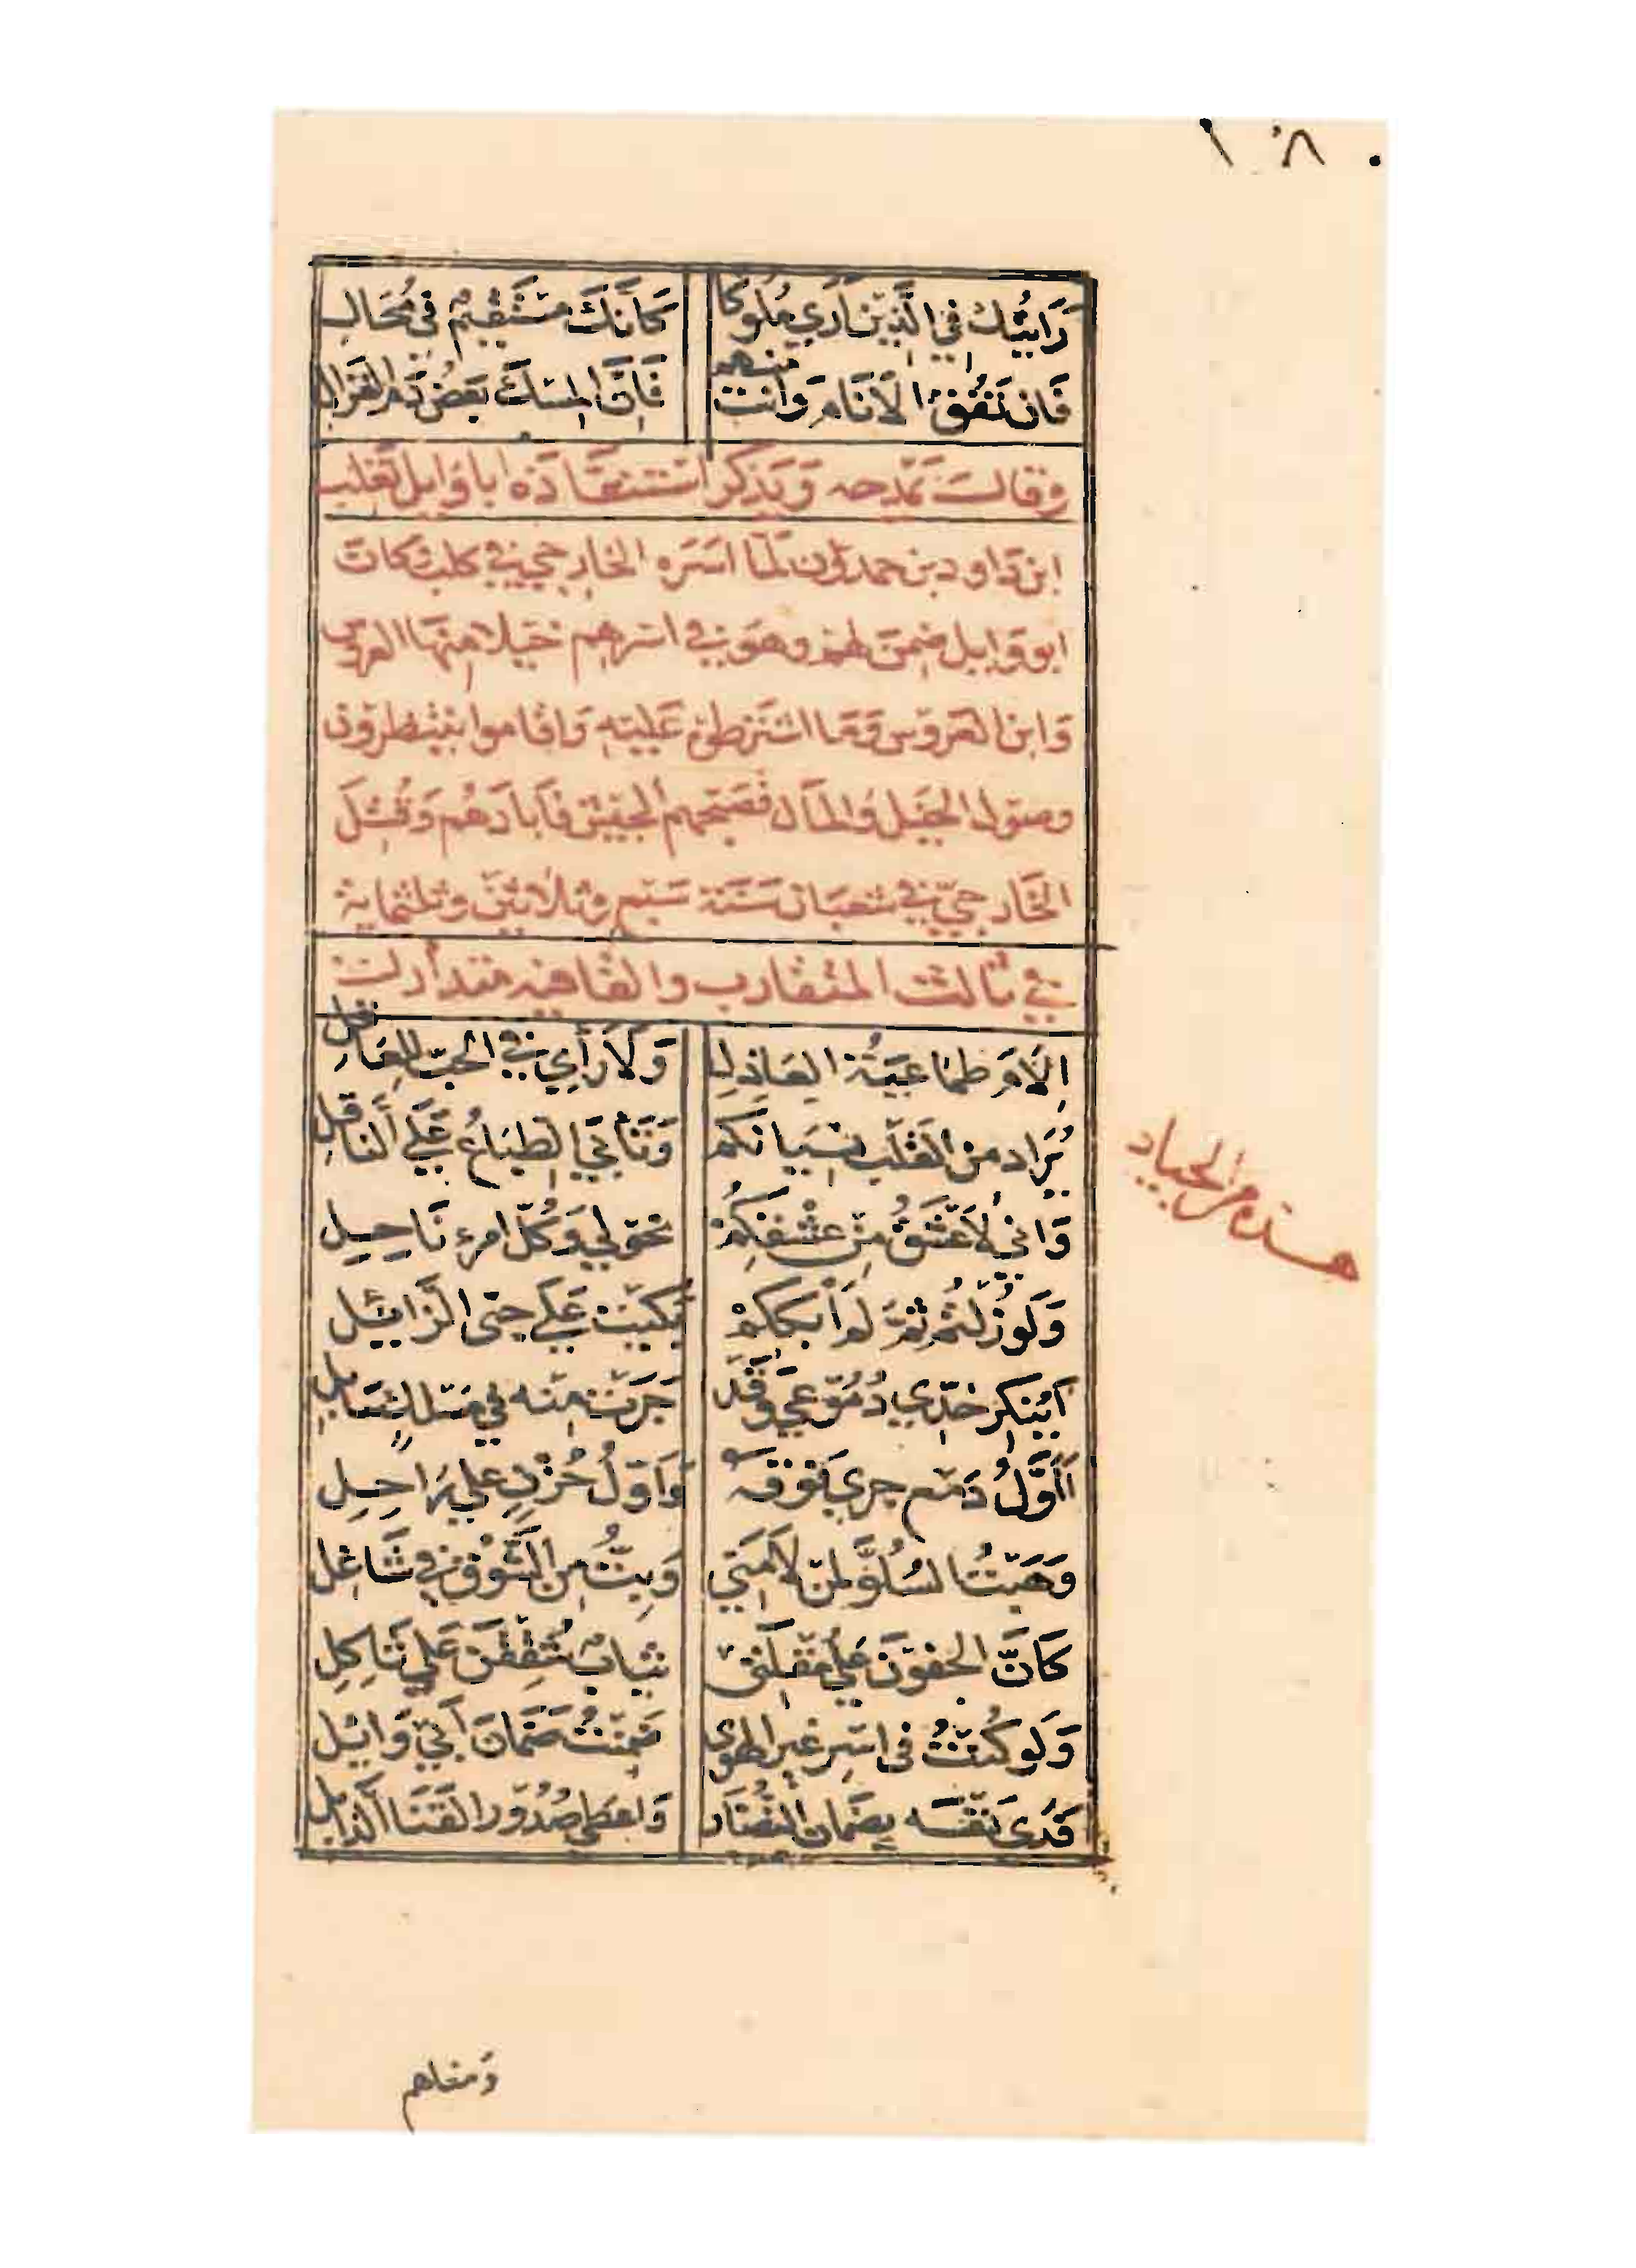 ١٠٨
رَايتُكَ في الَّذِينَ أرَي مُلُوكًا كَانَّكَ مُسْتَقِيمٌ في مُحَالِ
فَان تَفُقِ الاَنَامَ وَانتَ منهم فَإنَّ المِسكَ بَعضُ دَمِ الغَزالِ
وقالــَ يَمدحه وَيَذكر استنقَاذه ابا وَايل تَغلب
ابن دَاود بن حمدون لَمّا اسَرَه الخارجي في كلب كانَ
ابو وَايل ضمنَ لهم وهو في اسرهم خيلا منها العروس
وَابن العروس وَمَا اشترط عَليه وَاقاموا ينتظرون
وصول الخيل وَالمَال فصَبحهم الجيش فأبادهُم وَقُتلَ
الخَارجيّ في شعبَان سَنَة سَبع وثلاثين وثلثماية
في ثالث المتقارب والقافيه متدارك
إلاَمَ طمَاعيَةُ العَاذِلِ وَلاَ رَأي في الحبّ للعَاقلِ
يُرَاد من القَلب نسيَانكم وَتَأبَي الطبَاعُ عَلَي النَاقلِ
وَاني لاَعشَقُ مِن عِشقِكُم نحولي وَكُلَّ امرء نَاحِـيلِ
وَلَو زُلتُم ثمَّ لَم أبككم بَكَيت عَلَي حبي الزَايِلِ
أيُنكرُ خَدّي دُمُوعي وَقَد جَرَت مِنه في مسلك سَابلِ
أأوَّلُ دَمع جري فَوقَه وَأوّلُ حُزنٍ علي رَاحِـلِ
وَهَبتُ السُلُوَّ لمَن لاَمَنِي وَبِتُّ مِنَ الشَّوقِ في شَاغلِ
كَأنَّ الجفونَ عَلَي مُقلَتي ثيابٌ شُقِقنَ عَلَي ثَاكِلِ
وَلَو كُنتُ في اسرِ غير الهوي ضَمنتُ ضَمَانَ أبي وَايلِ
فَدَي نَفسَه بضَمان النُضَار وَاعطي صُدُورَ القَنَا الذَابلِ
هذه من الجياد
وَمناهم